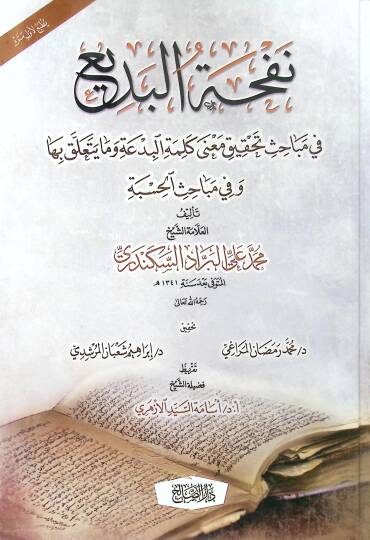 يطبع لأول مرة
نفحة البديع
في مباحث تحقيق معنى كلمة البدعة وما يتعلق بها
وفي مباحث الحسبة
تأليف
العلامة الشيخ
محمد علي البراد السكندري
المتوفى بعد سنة ١٣٤١ هـ
رحمه الله تعالى
تحقيق
د/ محمد رمضان المراغي
د/ إبراهيم شعبان المرشدي
تقريظ
فضيلة الشيخ
أ.د/ أسامة السيد الأزهري
دار الصالح